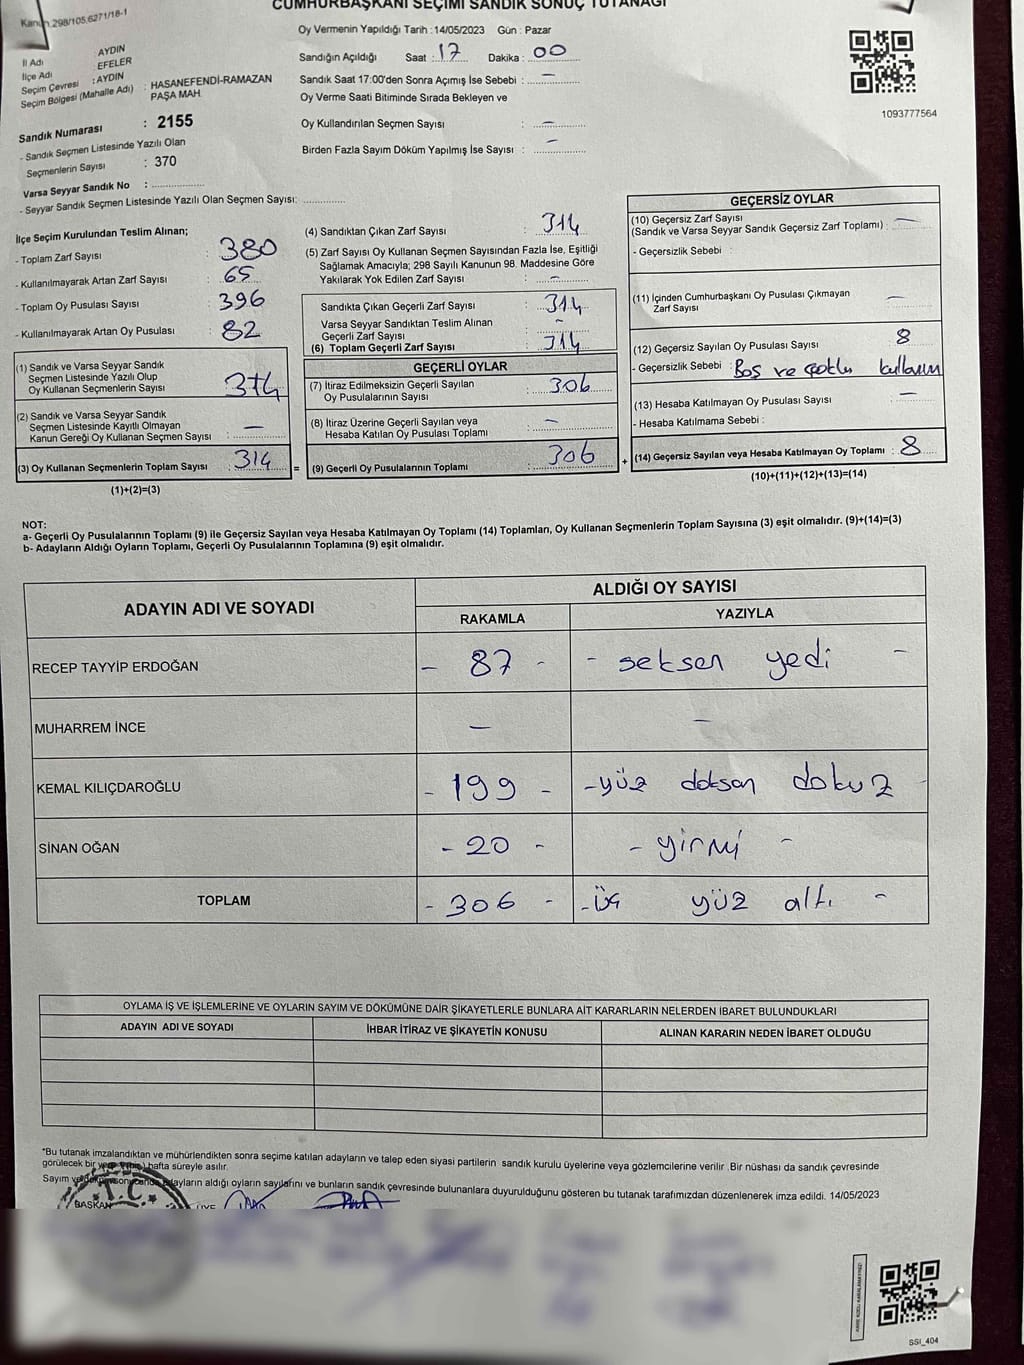 CUMHURBAŞKANI SEÇİMİ SANDIK SONUÇ TUTANAĞI
Kanun 298/105,6271/18-1
Oy Vermenin Yapıldığı Tarih :14/05/2023 Gün : Pazar
İl Adı : AYDIN
İlçe Adı : EFELER
Seçim Çevresi : AYDIN
Seçim Bölgesi (Mahalle Adı) : HASANEFENDİ-RAMAZAN PAŞA MAH.
Sandığın Açıldığı Saat : 17 Dakika : 00
Sandık Saat 17:00'den Sonra Açımış İse Sebebi : —
Oy Verme Saati Bitiminde Sırada Bekleyen ve
Oy Kullandırılan Seçmen Sayısı : —
Birden Fazla Sayım Döküm Yapılmış İse Sayısı : —
1093777564
Sandık Numarası : 2155
- Sandık Seçmen Listesinde Yazılı Olan
Seçmenlerin Sayısı : 370
Varsa Seyyar Sandık No :
- Seyyar Sandık Seçmen Listesinde Yazılı Olan Seçmen Sayısı:
İlçe Seçim Kurulundan Teslim Alınan;
- Toplam Zarf Sayısı : 380
- Kullanılmayarak Artan Zarf Sayısı : 65
- Toplam Oy Pusulası Sayısı : 396
- Kullanılmayarak Artan Oy Pusulası : 82
(1) Sandık ve Varsa Seyyar Sandık
Seçmen Listesinde Yazılı Olup
Oy Kullanan Seçmenlerin Sayısı : 314
(2) Sandık ve Varsa Seyyar Sandık
Seçmen Listesinde Kayıtlı Olmayan
Kanun Gereği Oy Kullanan Seçmen Sayısı : —
(3) Oy Kullanan Seçmenlerin Toplam Sayısı : 314 =
(1)+(2)=(3)
(4) Sandıktan Çıkan Zarf Sayısı : 314
(5) Zarf Sayısı Oy Kullanan Seçmen Sayısından Fazla İse, Eşitliği
Sağlamak Amacıyla; 298 Sayılı Kanunun 98. Maddesine Göre
Yakılarak Yok Edilen Zarf Sayısı : —
Sandıkta Çıkan Geçerli Zarf Sayısı : 314
Varsa Seyyar Sandıktan Teslim Alınan
Geçerli Zarf Sayısı : —
(6) Toplam Geçerli Zarf Sayısı : 314
GEÇERLİ OYLAR
(7) İtiraz Edilmeksizin Geçerli Sayılan
Oy Pusulalarının Sayısı : 306
(8) İtiraz Üzerine Geçerli Sayılan veya
Hesaba Katılan Oy Pusulası Toplamı : —
(9) Geçerli Oy Pusulalarının Toplamı : 306 +
GEÇERSİZ OYLAR
(10) Geçersiz Zarf Sayısı
(Sandık ve Varsa Seyyar Sandık Geçersiz Zarf Toplamı) : —
- Geçersizlik Sebebi :
(11) İçinden Cumhurbaşkanı Oy Pusulası Çıkmayan
Zarf Sayısı —
(12) Geçersiz Sayılan Oy Pusulası Sayısı : 8
- Geçersizlik Sebebi : Boş ve çoklu kullanım
(13) Hesaba Katılmayan Oy Pusulası Sayısı : —
- Hesaba Katılmama Sebebi :
(14) Geçersiz Sayılan veya Hesaba Katılmayan Oy Toplamı : 8
(10)+(11)+(12)+(13)=(14)
NOT:
a- Geçerli Oy Pusulalarının Toplamı (9) ile Geçersiz Sayılan veya Hesaba Katılmayan Oy Toplamı (14) Toplamları, Oy Kullanan Seçmenlerin Toplam Sayısına (3) eşit olmalıdır. (9)+(14)=(3)
b- Adayların Aldığı Oyların Toplamı, Geçerli Oy Pusulalarının Toplamına (9) eşit olmalıdır.
ADAYIN ADI VE SOYADI
ALDIĞI OY SAYISI
RAKAMLA YAZIYLA
RECEP TAYYİP ERDOĞAN - 87 - - seksen yedi -
MUHARREM İNCE — —
KEMAL KILIÇDAROĞLU - 199 - - yüz doksan dokuz -
SİNAN OĞAN - 20 - - yirmi -
TOPLAM - 306 - - üç yüz altı -
OYLAMA İŞ VE İŞLEMLERİNE VE OYLARIN SAYIM VE DÖKÜMÜNE DAİR ŞİKAYETLERLE BUNLARA AİT KARARLARIN NELERDEN İBARET BULUNDUKLARI
ADAYIN ADI VE SOYADI İHBAR İTİRAZ VE ŞİKAYETİN KONUSU ALINAN KARARIN NEDEN İBARET OLDUĞU
"Bu tutanak imzalandıktan ve mühürlendikten sonra seçime katılan adayların ve talep eden siyasi partilerin sandık kurulu üyelerine veya gözlemcilerine verilir .Bir nüshası da sandık çevresinde
görülecek bir yere (bir) hafta süreyle asılır.
Sayım ve döküm sonucunda adayların aldığı oyların sayılarını ve bunların sandık çevresinde bulunanlara duyurulduğunu gösteren bu tutanak tarafımızdan düzenlenerek imza edildi. 14/05/2023
T.C.
BAŞKAN ÜYE
SSI_404